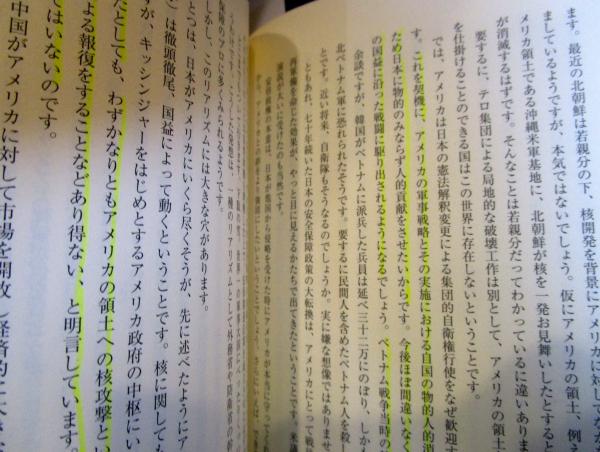 ます。最近の北朝鮮は若親分の下、核開発を背景にアメリカに対してなか
ましているようですが、本気ではないでしょう。仮にアメリカの領土、例え
メリカ領土である沖縄米軍基地に、北朝鮮が核を一発お見舞いしたとすると
が消滅するはずです。そんなことは若親分だってわかっているに違いありま
要するに、テロ集団による局地的な破壊工作は別として、アメリカの領土
を仕掛けることのできる国はこの世界に存在しないということです。
では、アメリカは日本の憲法解釈変更による集団的自衛権行使をなぜ歓迎す
す。これを契機に、アメリカの軍事戦略とその実施における自国の物的人的消
ため日本に物的のみならず人的貢献をさせたいからです。今後ほぼ間違いなく
の国益に沿った戦闘に駆り出されるようになるでしょう。ベトナム戦争当時の
余談ですが、韓国がベトナムに派兵した兵員は延べ三十二万にのぼり、しか
北ベトナム軍に恐れられたそうです。要するに民間人を含めたベトナム人を殺し
とです。近い将来、自衛隊もそうなるのでしょうか。実に嫌な想像ではありませ
ともあれ、七十年続いた日本の安全保障政策の大転換は、アメリカにとって戦
再軍備を命じた効果が、やっと目に見えるかたちで出てきたということです。米議
演説が大いに受けたのも当然です。
保障のプロに多くみられるようです。
しかし、このリアリズムには大きな穴があります。
とつは、日本がアメリカにいくら尽くそうが、先に述べたようにア
）は徹頭徹尾、国益によって動くということです。核に関しても
すが、キッシンジャーをはじめとするアメリカ政府の中枢にい
たとしても、わずかなりともアメリカの領土への核攻撃とい
よる報復をすることなどあり得ない、と明言しています。
ではいないのです。
中国がアメリカに対して市場を開放し経済的に大き